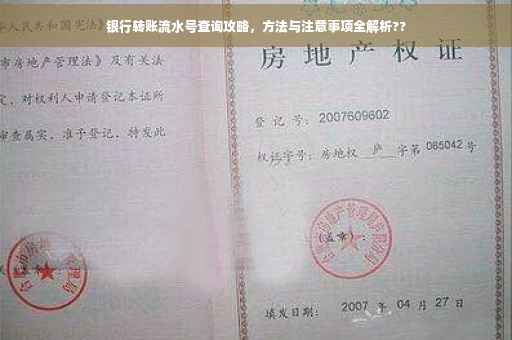 银行转账流水号查询攻略，方法与注意事项全解析??
华人民共和国宪法》
市房地产管理法》及有关法
定，对权利人申请登记本证所
审查属实，准予登记，特发此
房地产权证
登记号：2007609602
权证字号：房地权 庐 字第 085042 号
(盖章)：
填发日期：2007 年 04 月 27 日